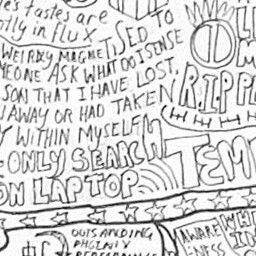 e's tastes are
tly in flux.
WEIRDLY MAGNETISED TO
MEONE ASK WHAT DO I SENSE
SON THAT I HAVE LOST,
AWAY OR HAD TAKEN
Y WITHIN MYSELF
R.I.PPL
ONLY SEARCH
ON LAPTOP
TEM
OUTSTANDING
PHOENIX
PERFORMANCE
AWARE
-NESS